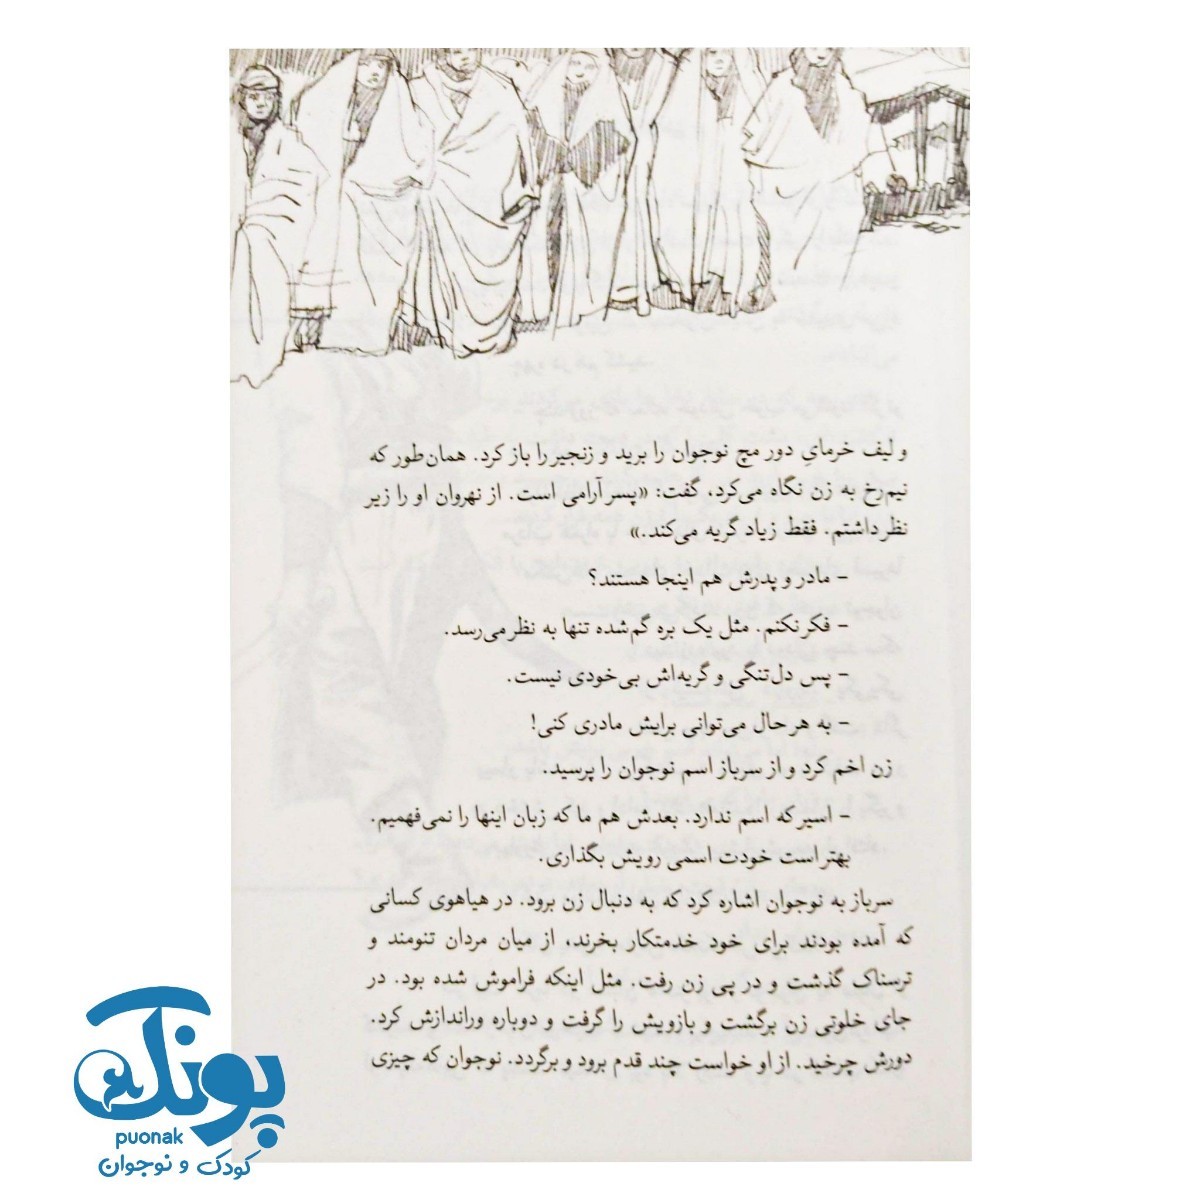 و لیف خرمایِ دور مچ نوجوان را برید و زنجیر را باز کرد. همان‌طور که
نیم‌رخ به زن نگاه می‌کرد، گفت: «پسر آرامی است. از نهروان او را زیر
نظر داشتم. فقط زیاد گریه می‌کند.»
– مادر و پدرش هم اینجا هستند؟
– فکر نکنم. مثل یک بره گم‌شده تنها به نظر می‌رسد.
– پس دل‌تنگی و گریه‌اش بی‌خودی نیست.
– به هر حال می‌توانی برایش مادری کنی!
زن اخم کرد و از سرباز اسم نوجوان را پرسید.
– اسیر که اسم ندارد. بعدش هم ما که زبان اینها را نمی‌فهمیم.
بهتر است خودت اسمی رویش بگذاری.
سرباز به نوجوان اشاره کرد که به دنبال زن برود. در هیاهوی کسانی
که آمده بودند برای خود خدمتکار بخرند، از میان مردان تنومند و
ترسناک گذشت و در پی زن رفت. مثل اینکه فراموش شده بود. در
جای خلوتی زن برگشت و بازویش را گرفت و دوباره وراندازش کرد.
دورش چرخید. از او خواست چند قدم برود و برگردد. نوجوان که چیزی
پونک
puonak
کودک و نوجوان